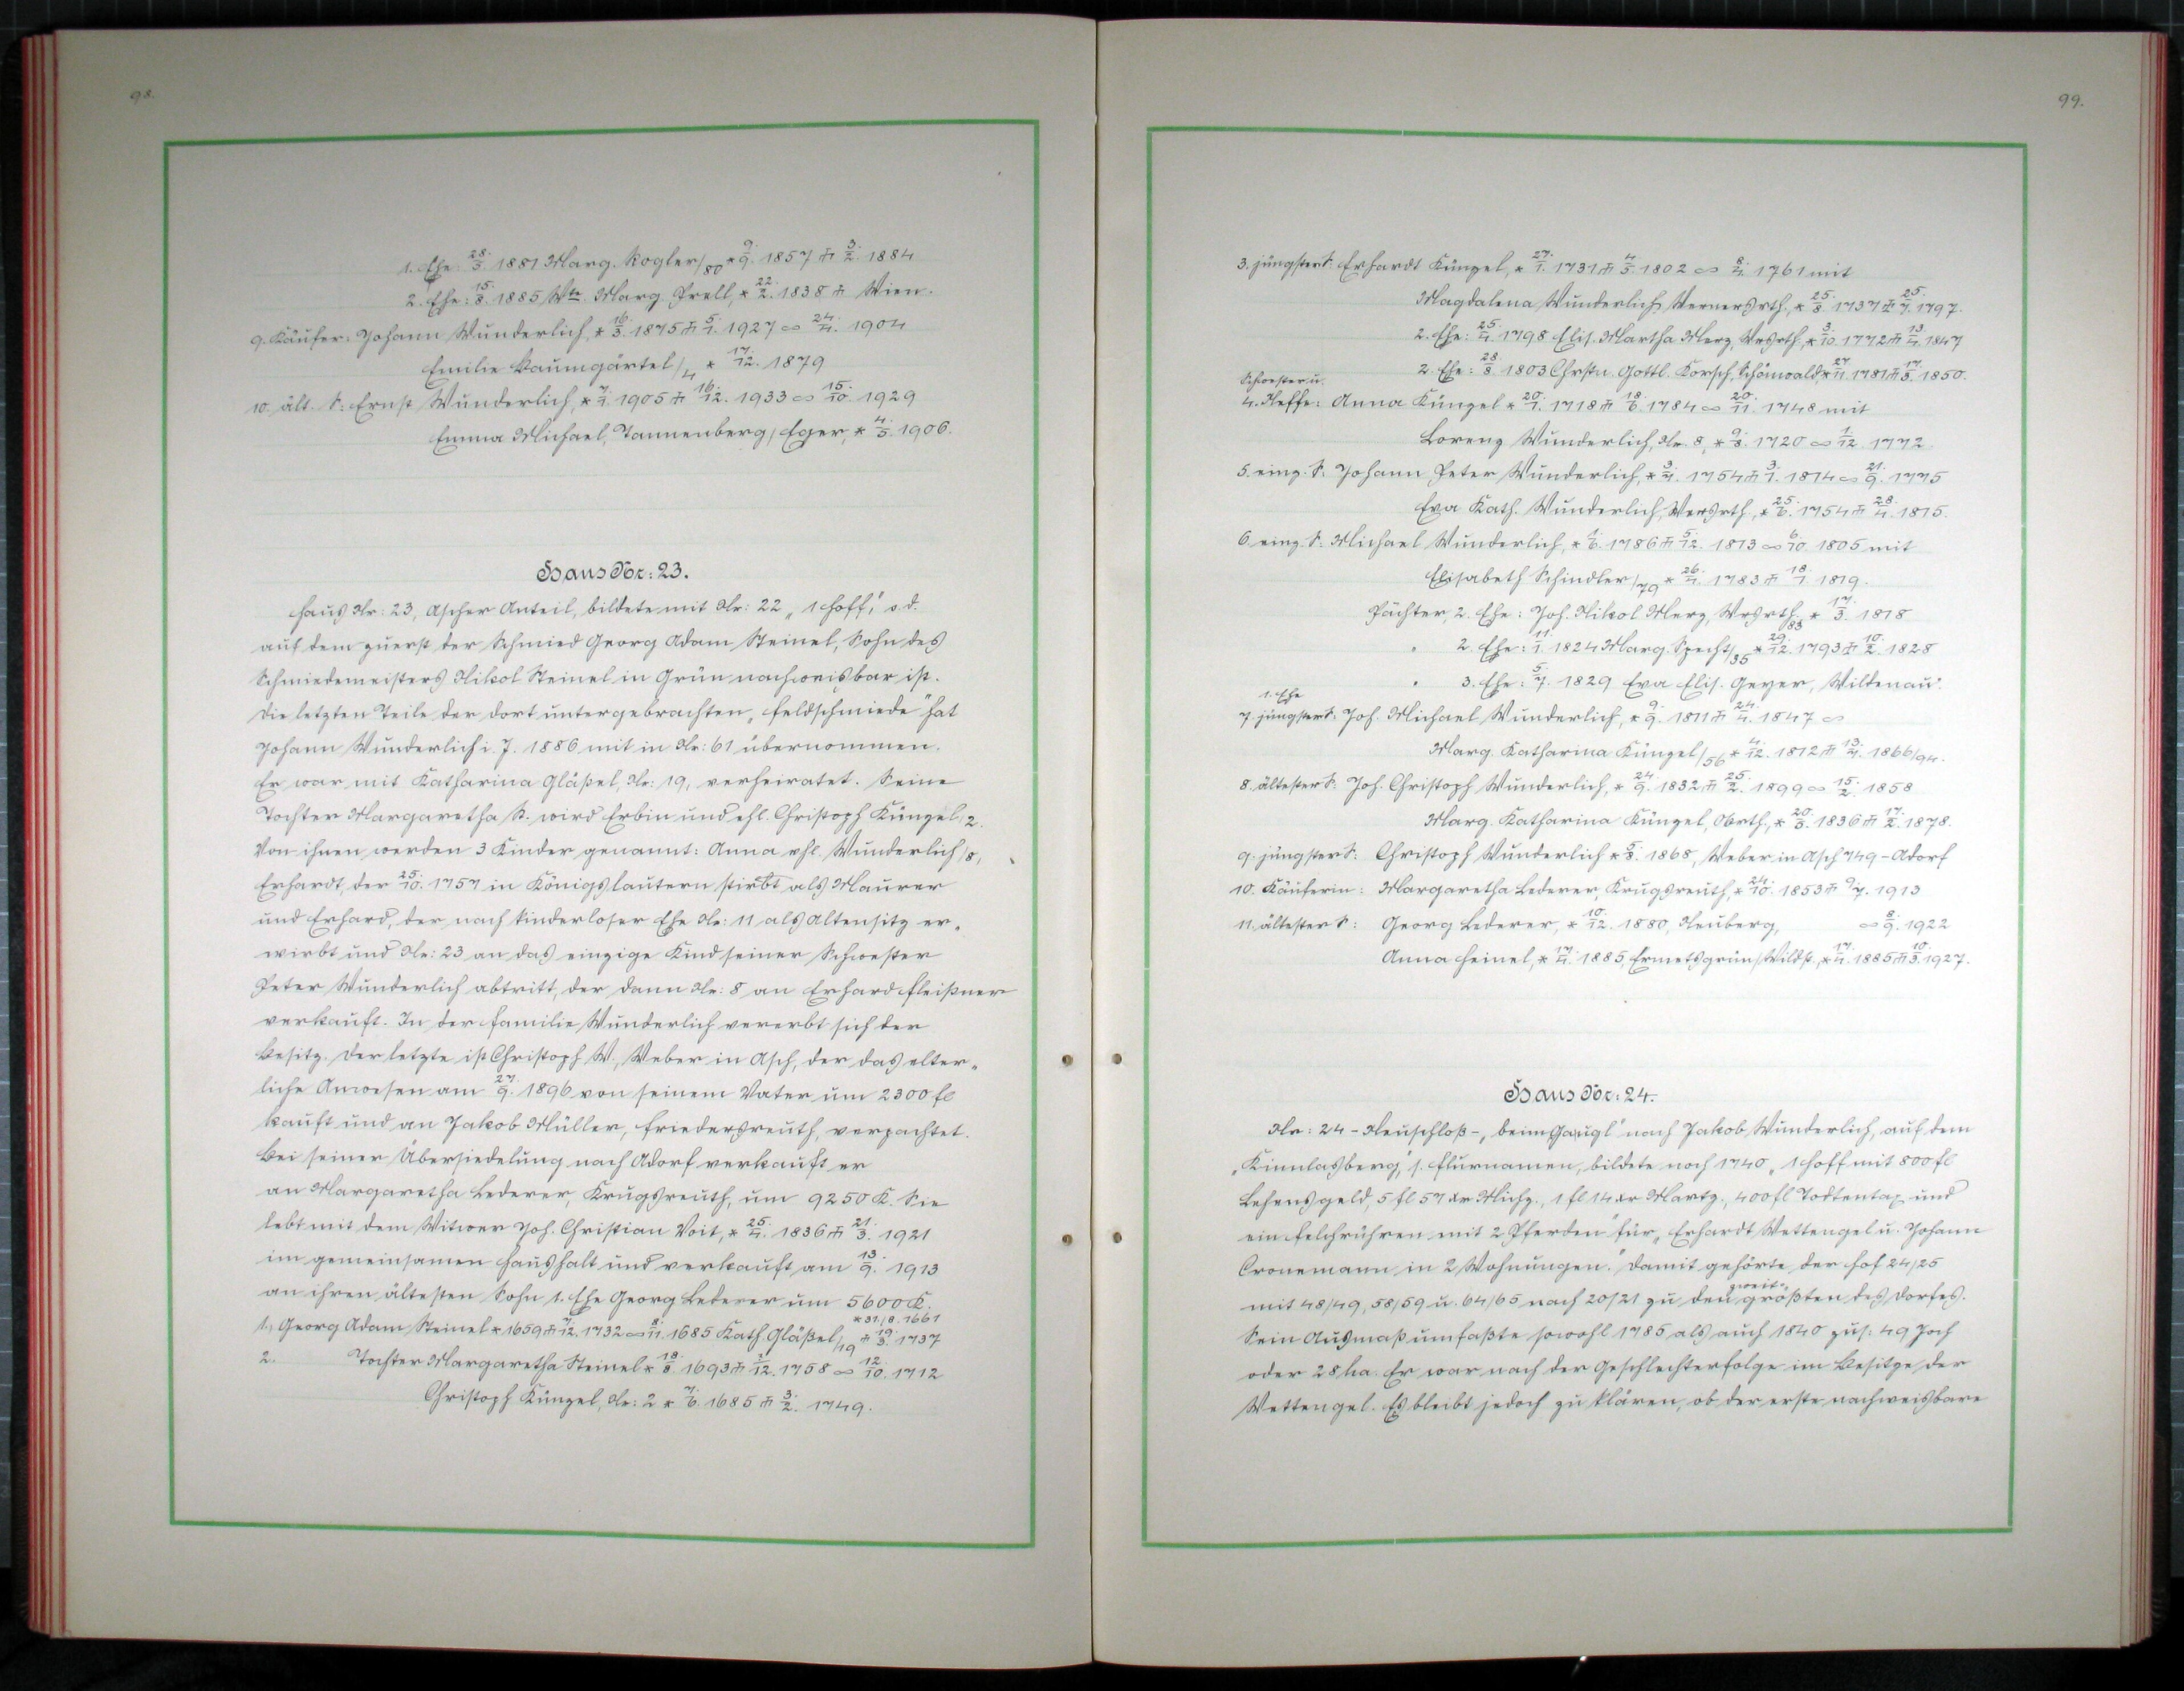 98.
1. Ehe: 28./3. 1881 Marg. Kogler/80 * 9./9. 1857 ⚰ 3./2. 1884
2. Ehe: 15./8. 1885 Wte. Marg. Prell, * 22./2. 1838 ⚰ Wien.
9. Käufer: Johann Wunderlich, * 16./3. 1875 ⚰ 5./1. 1927 ∞ 24./4. 1904
Emilie Baumgärtel/4 * 17./12. 1879
10. ält. S: Ernst Wunderlich, * 7./1. 1905 ⚰ 16./12. 1933 ∞ 15./10. 1929
Emma Michael, Tannenberg/Eger, * 4./5. 1906.
Haus Nr: 23.
Haus Nr: 23, Ascher Anteil, bildete mit Nr: 22 „1 Hoff", o.d.
auf dem zuerst der Schmied Georg Adam Steinel, Sohn des
Schmiedemeisters Nikol Steinel in Grün nachweisbar ist.
Die letzten Teile der dort untergebrachten „Feldschmiede" hat
Johann Wunderlich i. J. 1886 mit in Nr: 61 übernommen.
Er war mit Katharina Gläßel, Nr: 19, verheiratet. Seine
Tochter Margaretha St. wird Erbin und ehl. Christoph Künzel/2.
Von ihnen werden 3 Kinder genannt: Anna vhl. Wunderlich/8,
Erhardt, der 25./10. 1757 in Königslautern stirbt als Maurer
und Erhard, der nach kinderloser Ehe Nr: 11 als Altensitz er„
wirbt und Nr: 23 an das einzige Kind seiner Schwester
Peter Wunderlich abtritt, der dann Nr: 8 an Erhard Fleißner
verkauft. In der Familie Wunderlich vererbt sich der
Besitz. Der letzte ist Christoph W., Weber in Asch, der das elter„
liche Anwesen am 27./9. 1896 von seinem Vater um 2300 fl
kauft und an Jakob Müller, Friedersreuth, verpachtet.
Bei seiner Übersiedelung nach Adorf verkauft er
an Margaretha Lederer, Krugsreuth, um 9250 K. Sie
lebt mit dem Witwer Joh. Christian Voit, * 25./4. 1836 ⚰ 21./3. 1921
im gemeinsamen Haushalt und verkauft am 13./9. 1913
an ihren ältesten Sohn 1. Ehe Georg Lederer um 5600 K.
1., Georg Adam Steinel * 1659 ⚰ 7./12. 1732 ∞ 8./11. 1685 Kath. Gläßel/19 * 31./8. 1661 ⚰ 19./3. 1737
2. Tochter Margaretha Steinel * 18./8. 1693 ⚰ 1./12. 1758 ∞ 12./10. 1712
Christoph Künzel, Nr: 2 * 7./6. 1685 ⚰ 3./2. 1749.
99.
3. jüngster S: Erhardt Künzel, * 27./1. 1731 ⚰ 4./5. 1802 ∞ 8./4. 1761 mit
Magdalena Wunderlich, Wernersrth., * 25./8. 1737 ⚰ 25./7. 1797.
2. Ehe: 25./4. 1798 Elis. Martha Merz, Wrsrth., * 3./10. 1772 ⚰ 13./4. 1847
2. Ehe: 28./8. 1803 Chrstn. Gottl. Korsch, Schönwald * 27./11. 1781 ⚰ 17./3. 1850.
Schwester u.
4. Neffe: Anna Künzel * 20./1. 1718 ⚰ 18./6. 1784 ∞ 20./11. 1748 mit
Lorenz Wunderlich, Nr. 8, * 9./8. 1720 ∞ 1./12. 1772
5. einz. S: Johann Peter Wunderlich, * 3./4. 1754 ⚰ 3./1. 1814 ∞ 21./9. 1775
Eva Kath. Wunderlich, Wersrth., * 25./6. 1754 ⚰ 28./4. 1815.
6. einz. S: Michael Wunderlich, * 1./6. 1786 ⚰ 5./12. 1813 ∞ 6./10. 1805 mit
Elisabeth Schindler/79 * 26./4. 1783 ⚰ 18./1. 1819.
Pächter, 2. Ehe: Joh. Nikol Merz, Wrsrth. * 17./3. 1818
" 2. Ehe: 11./1. 1824 Marg. Specht/35 * 29./12. 1793 ⚰ 10./2. 1828
" 3. Ehe: 5./7. 1829 Eva Elis. Geyer, Wildenau.
1. Ehe
7. jüngster S: Joh. Michael Wunderlich, * 9./9. 1811 ⚰ 24./4. 1847 ∞
Marg. Katharina Künzel/56 * 4./12. 1812 ⚰ 13./4. 1866/94.
8. ältester S: Joh. Christoph Wunderlich, * 24./9. 1832 ⚰ 25./2. 1899 ∞ 15./2. 1858
Marg. Katharina Künzel, Obrth., * 20./3. 1836 ⚰ 17./2. 1878.
9. jüngster S: Christoph Wunderlich * 5./8. 1868, Weber in Asch 749 - Adorf
10. Käuferin: Margaretha Lederer, Krugsreuth, * 24./10. 1853 ⚰ 9/7. 1913
11. ältester S: Georg Lederer, * 10./12. 1880, Neuberg, ∞ 8./9. 1922
Anna Heinel, * 17./4. 1885, Ermetsgrün/Wildst., * 17./4. 1885 ⚰ 10./3. 1927.
Haus Nr: 24.
Nr: 24 - Neuschloß -, „beim Gaugl" nach Jakob Wunderlich, auf dem
„Kinnlasberg", s. Flurnamen, bildete noch 1740 „1 Hoff mit 800 fl
Lehensgeld, 5 fl 57 xr Michz., 1 fl 14 xr Martz., 400 fl Todtentax und
ein Felchrühren mit 2 Pferden" für „Erhardt Wettengel u. Johann
Cronemann in 2 Wohnungen." Damit gehörte der Hof 24/25
mit 48/49, 58/59 u. 64/65 nach 20/21 zu den zweit„größten des Dorfes.
Sein Ausmaß umfaßte sowohl 1785 als auch 1840 zus: 49 Joch
oder 28 ha. Er war nach der Geschlechterfolge im Besitze der
Wettengel. Es bleibt jedoch zu klären, ob der erste nachweisbare